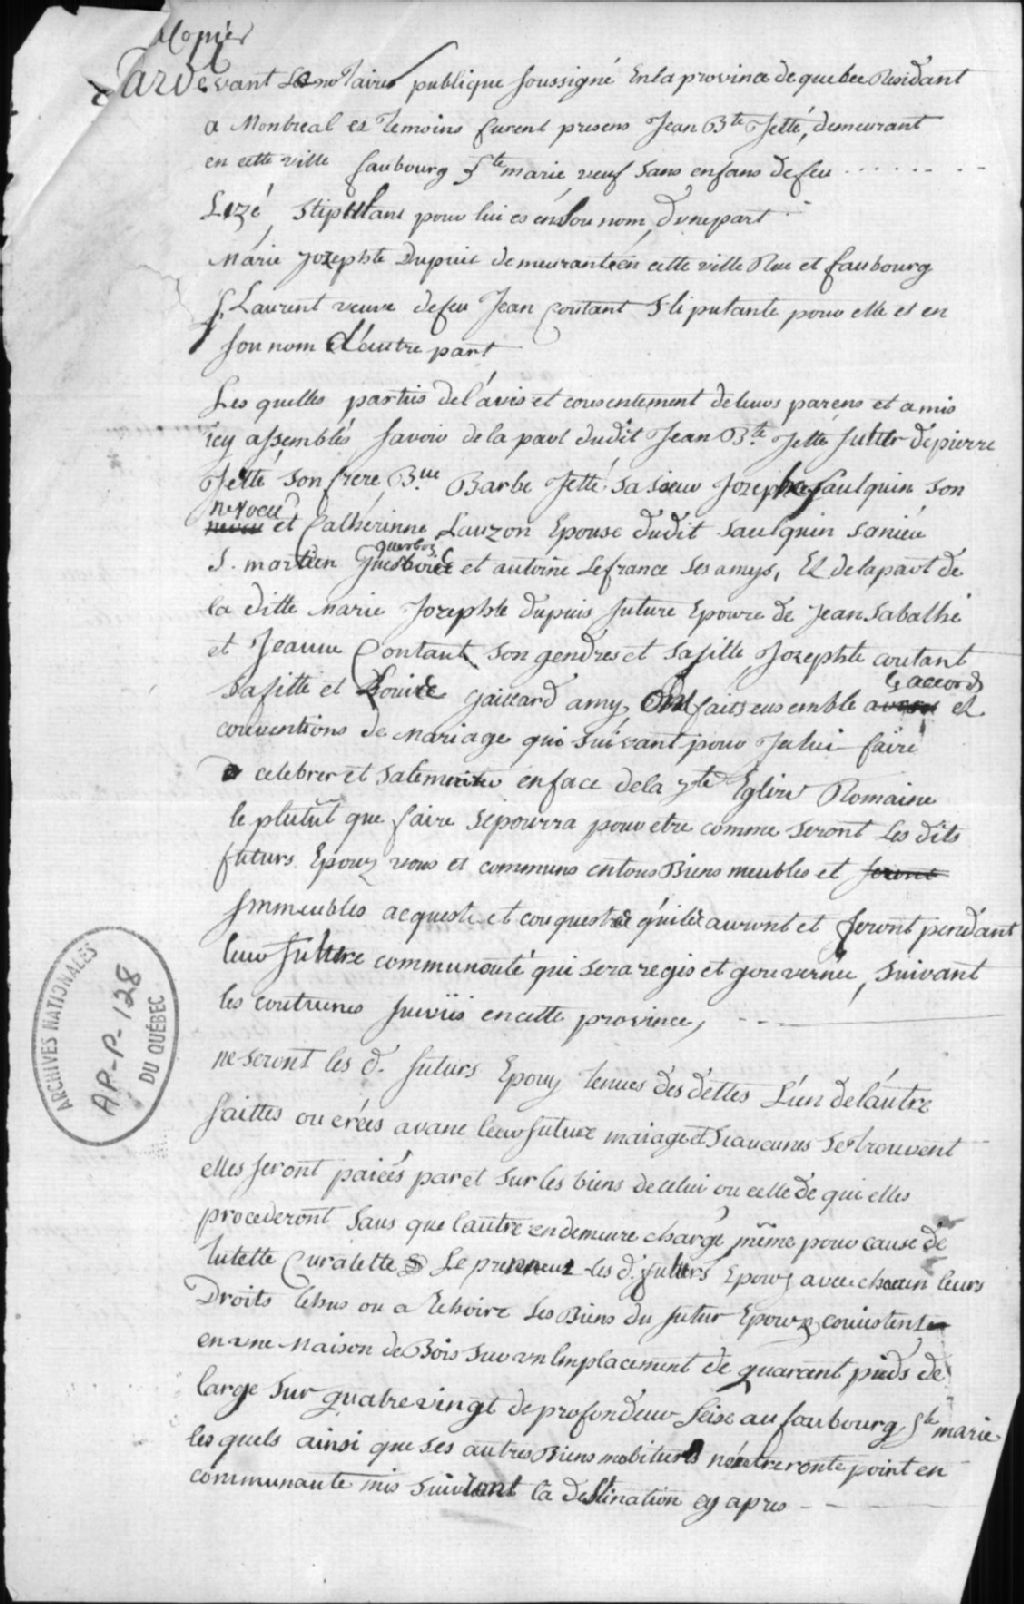 Copier
Pardevant Le notaire publique soussigné En la province de quebec Residant
a Montreal es temoins furent presens Jean Bte Jetté, demeurant
en cette ville faubourg Ste marie veuf sans enfans de feu . . . . . . . .
Lizé, Stipulant pour lui es en son nom, d'une part
Marie Jozephte Dupuis demeurante en cette ville Rue et faubourg
St. Laurent veuve de feu Jean Coutant Stipulante pour elle et en
son nom d'autre part
Les quelles parties de l'avis et consentement de leurs parens et amis
icy assemblés savoir de la part dudit Jean Bte Jetté futur de pierre
Jetté son frere Barbe Jetté sa soeur Jozeph saulquin son
neveu
et Catherinne Lauzon Epouse dudit saulquin sa niece
S. martien et antoine Lefrance ses amys, Et de la part de
la ditte Marie Jozephte dupuis future Epouse de Jean Sabathé
et Jeanne Coutant son gendres et sa fille Jozephte coutant
sa fille et Louis gaillard amy, Ont faits ensemble
les accords
et
conventions de Mariage qui suivant pour Jcelui faire
celebrer et solemniser en face de la Ste Eglise Romaine
le plutut que faire se pourra pour etre comme seront Les dits
futurs Epoux uns et communs en tous Biens meubles et
Jmmeubles acquests et conquests qu'ils auront et feront pendant
leur future communauté qui sera regis et gouvernée, suivant
les coutumes suivis en cette province,
ne seront les d. futurs Epoux tenues des dettes L'un de l'autre
faittes ou créés avant leur future mariage et Si aucunes se trouvent
elles seront paiées par et sur les biens de celui ou celle de qui elles
procederont sans que l'autre en demeure chargé même pour cause de
tutelle Curatelle Se prennent Les d. futurs Epoux avec chacun leurs
Droits echus ou a Echoire Les Biens du futur Epoux consistent
en une Maison de Bois sur un Emplacement de quarant pieds de
large sur quatre vingt de profondeur seise au faubourg Ste marie
les quels ainsi que ses autres Biens mobiliers n'entreronte point en
communaute mis suivant la destination cy apres
ARCHIVES NATIONALES
AP-P-128
DU QUÉBEC